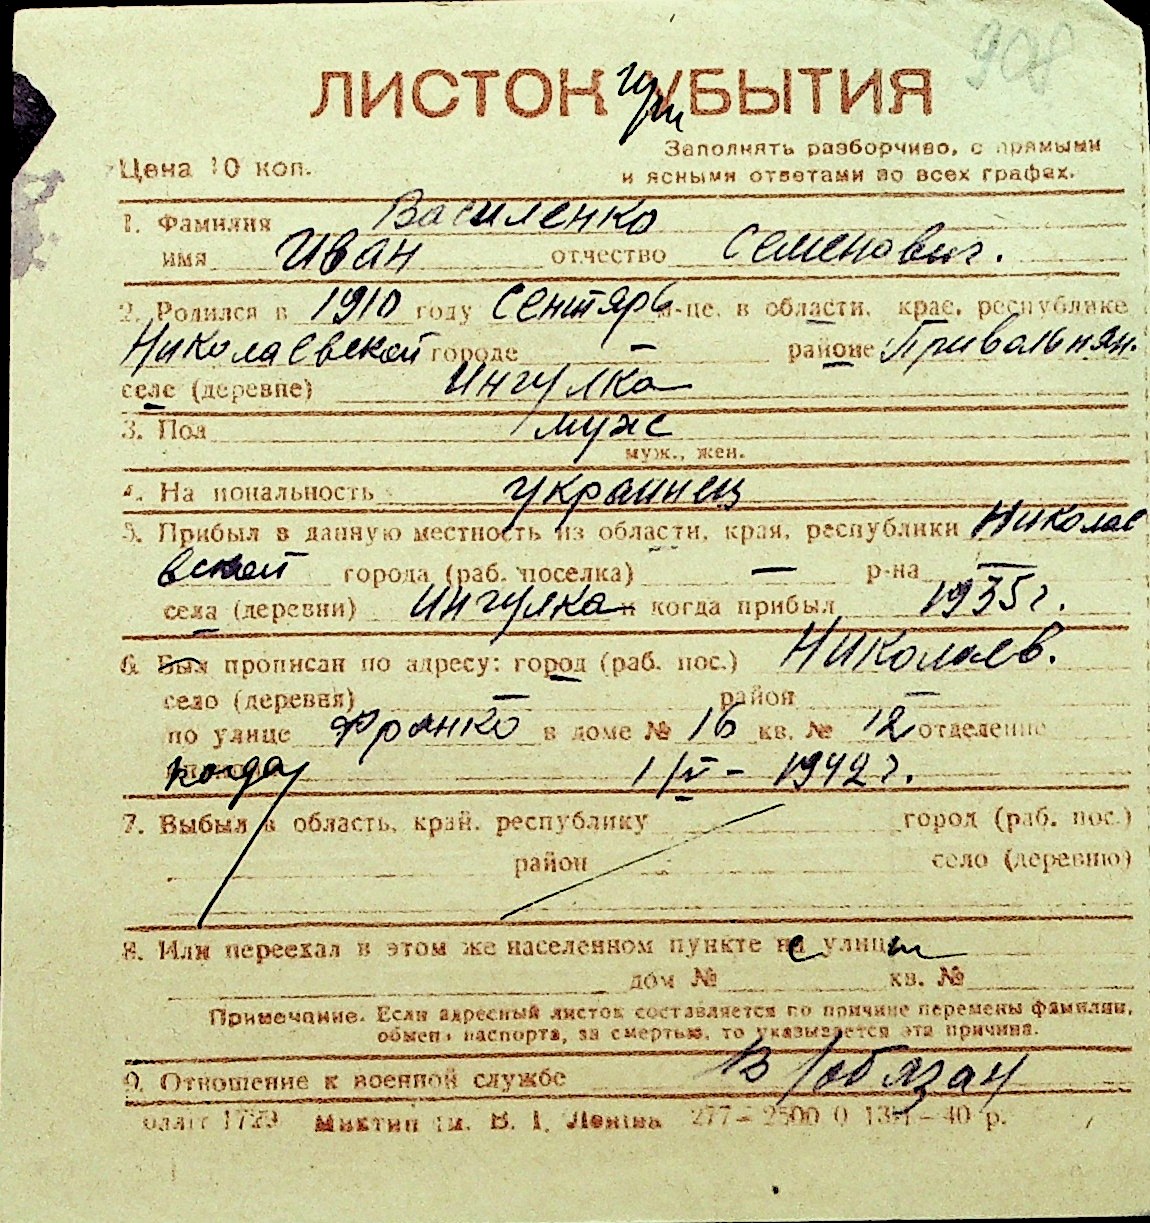 908
ЛИСТОК УБЫТИЯ
Цена 10 коп.
Заполнять разборчиво, с прямыми
и ясными ответами во всех графах.
1. Фамилия Василенко
имя Иван отчество Семенович.
2. Родился в 1910 году Сентябр м-це, в области, крае, республике
Николаевской городе — районе Привольнян.
селе (деревне) Ингулка
3. Пол муж
муж., жен.
4. На иональность украинец
5. Прибыл в данную местность из области, края, республики Николае
вской города (раб. поселка) — р-на —
села (деревни) Ингулка и когда прибыл 1935 г.
6. Был прописан по адресу: город (раб. пос.) Николаев.
село (деревня) — район —
по улице Франко в доме № 16 кв. № 12 отделение
когда 1/IV - 1942 г.
7. Выбыл в область, край, республику город (раб. пос.)
район село (деревню)
8. Или переехал в этом же населенном пункте с улицы
дом № кв. №
Примечание. Если адресный листок составляется по причине перемены фамилии,
обмена паспорта, за смертью, то указывается эта причина.
9. Отношение к военной службе В/обязан
1729 Миктип ім. В. І. Леніна 277 – 2500 0 – 40 р.